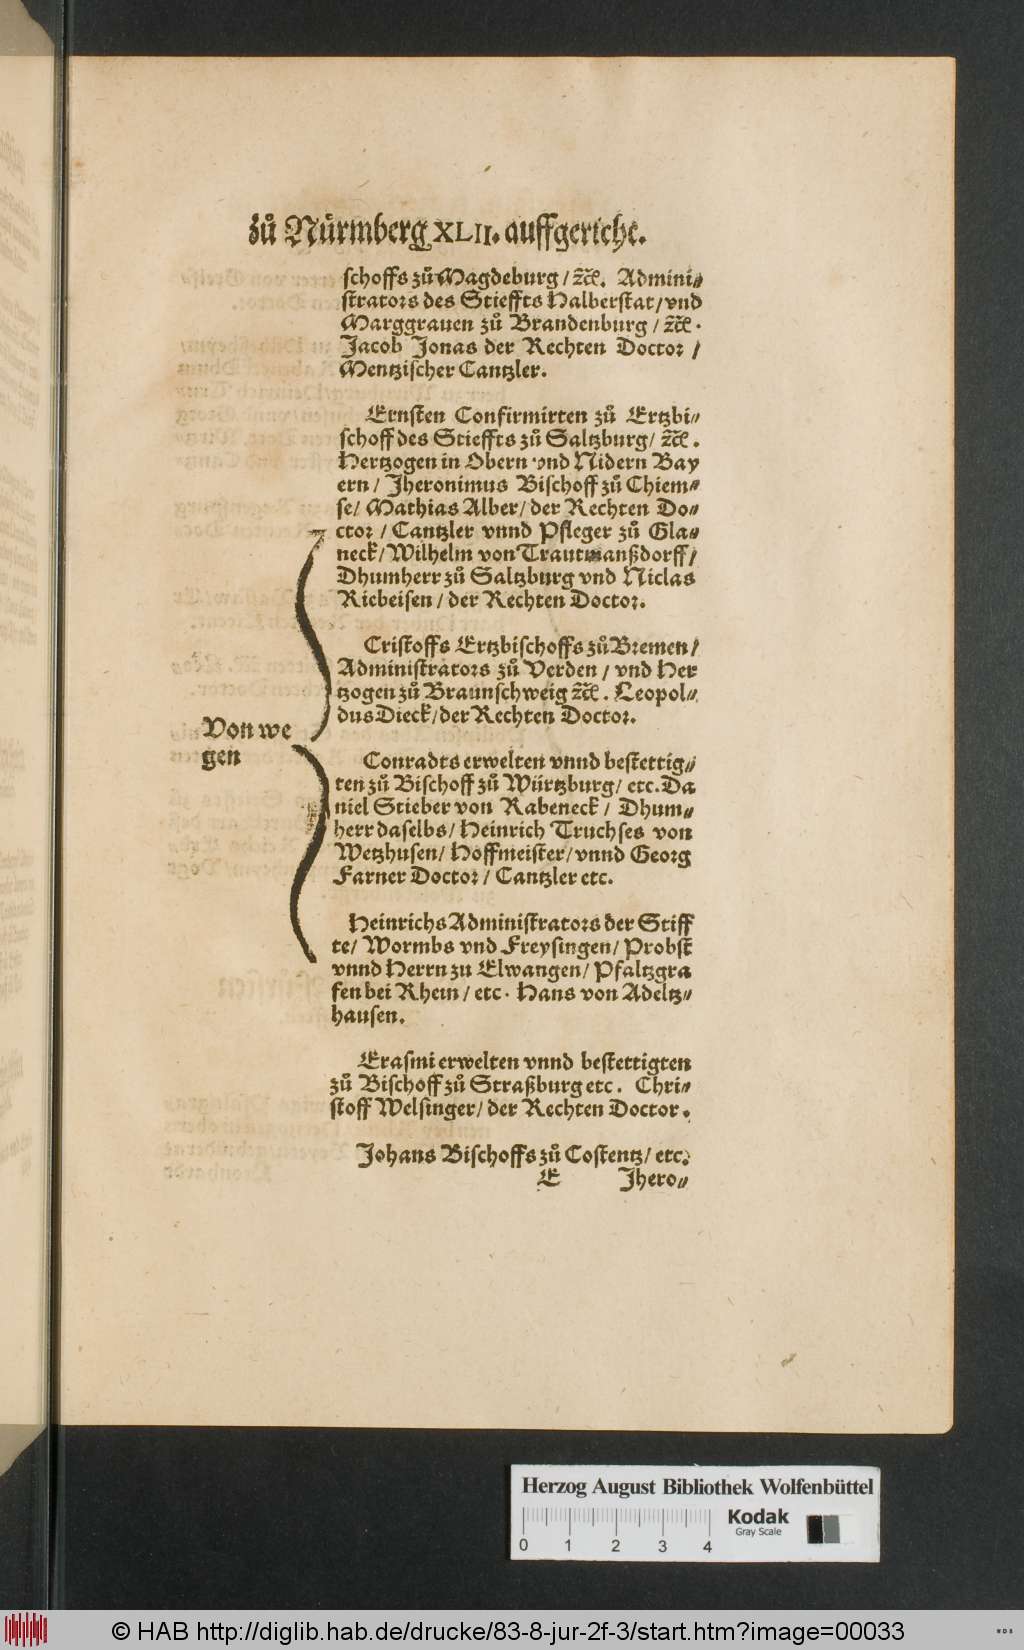 zů Nůrmberg XLII. auffgericht.
schoffs zů Magdeburg / ꝛc̃. Admini⸗
strators des Stieffts Halberstat / vnd
Marggrauen zů Brandenburg / ꝛc̃.
Jacob Jonas der Rechten Doctor /
Mentzischer Cantzler.
Ernsten Confirmirten zů Ertzbi⸗
schoff des Stieffts zů Saltzburg / ꝛc̃.
Hertzogen in Obern vnd Nidern Bay
ern / Jheronimus Bischoff zů Chiem⸗
se / Mathias Alber / der Rechten Do⸗
ctor / Cantzler vnnd Pfleger zů Gla⸗
neck / Wilhelm von Trautmanßdorff /
Dhumherr zů Saltzburg vnd Niclas
Riebeisen / der Rechten Doctor.
Cristoffs Ertzbischoffs zů Bremen /
Administrators zů Verden / vnd Her
tzogen zů Braunschweig ꝛc̃. Leopol⸗
dus Dieck / der Rechten Doctor.
Von we
gen
Conradts erwelten vnnd bestettig⸗
ten zů Bischoff zů Würtzburg / etc. Da
niel Stieber von Rabeneck / Dhum⸗
herr daselbs / Heinrich Truchses von
Wetzhusen / Hoffmeister / vnnd Georg
Farner Doctor / Cantzler etc.
Heinrichs Administrators der Stiff
te / Wormbs vnd Freysingen / Probst
vnnd Herrn zu Elwangen / Pfaltzgra
fen bei Rhein / etc. Hans von Adeltz⸗
hausen.
Erasmi erwelten vnnd bestettigten
zů Bischoff zů Straßburg etc. Chri⸗
stoff Welsinger / der Rechten Doctor.
Johans Bischoffs zů Costentz / etc.
E Jhero⸗
Herzog August Bibliothek Wolfenbüttel
Kodak
Gray Scale
0 1 2 3 4
© HAB http://diglib.hab.de/drucke/83-8-jur-2f-3/start.htm?image=00033